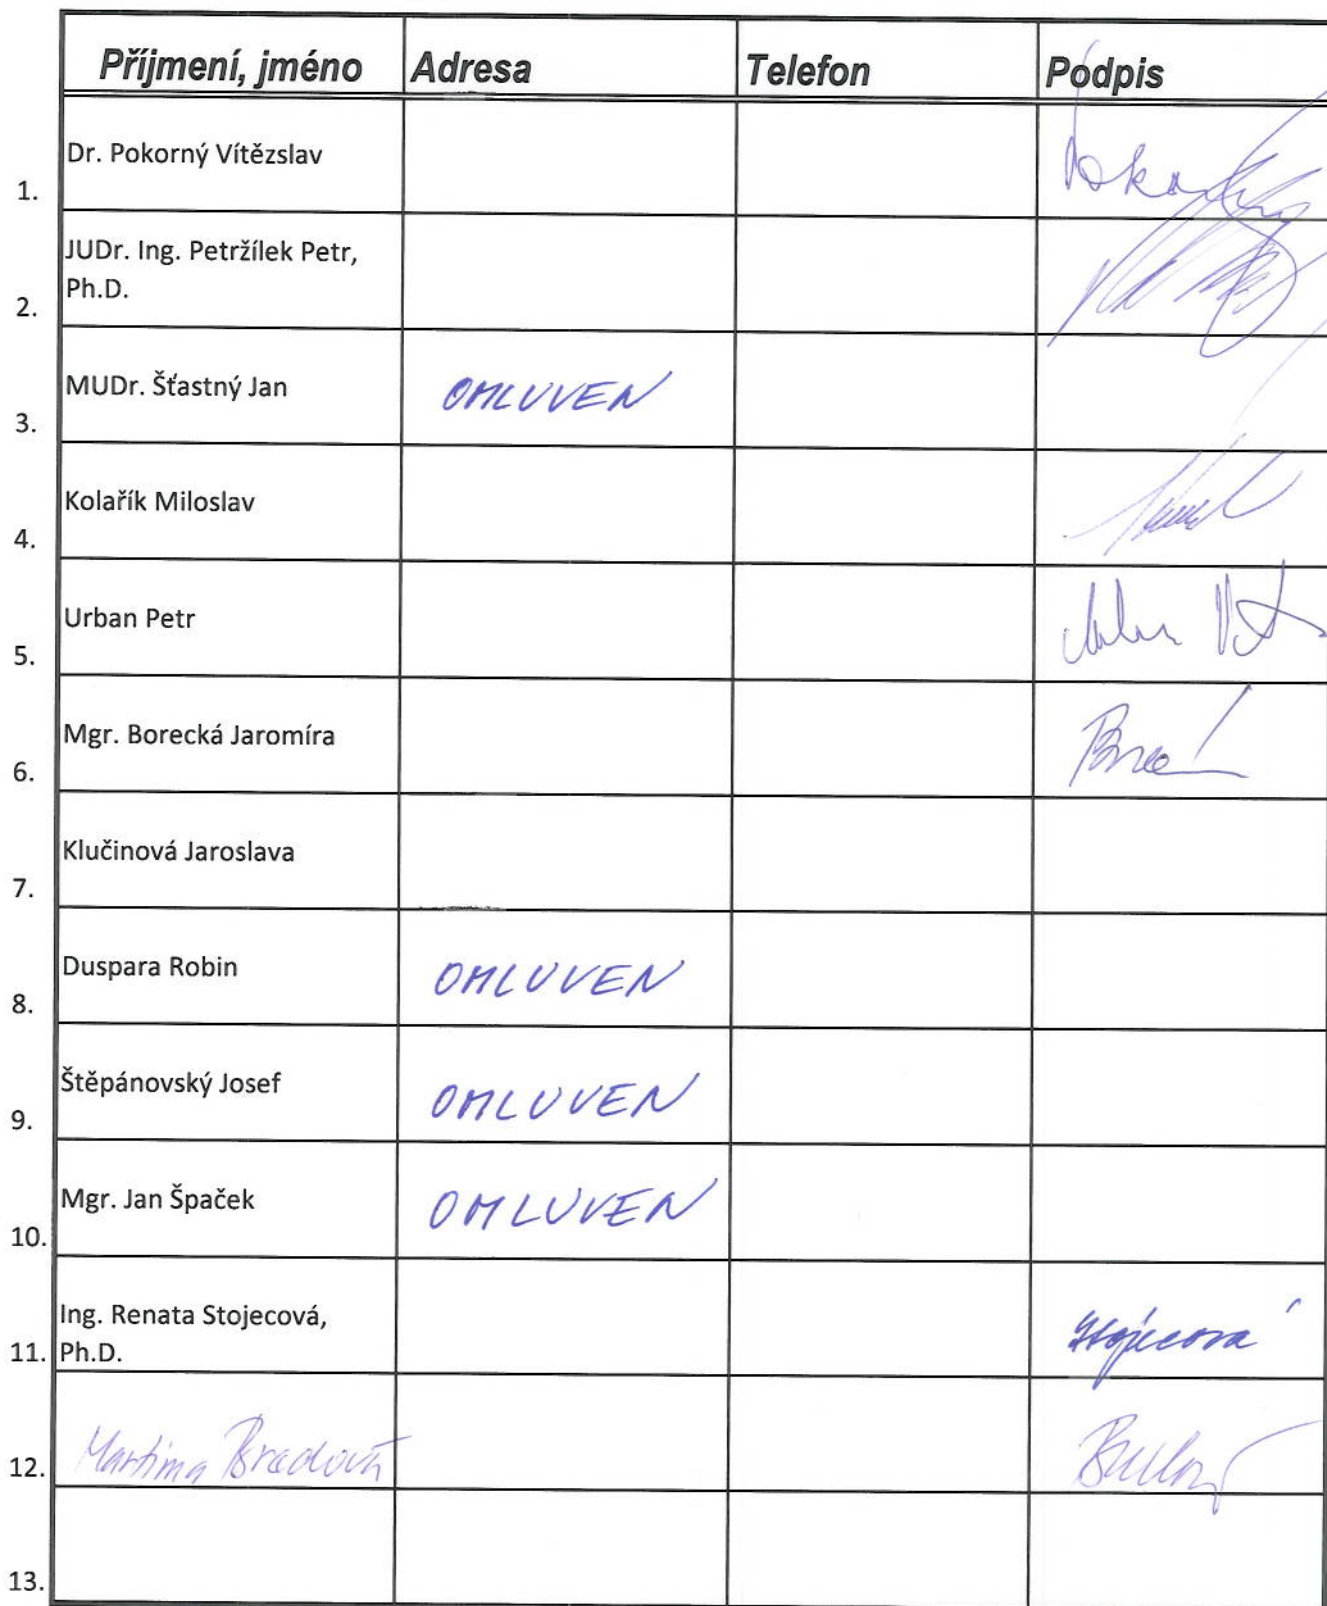 Příjmení, jméno Adresa Telefon Podpis
1. Dr. Pokorný Vítězslav
2. JUDr. Ing. Petržílek Petr,
Ph.D.
3. MUDr. Šťastný Jan OMLUVEN
4. Kolařík Miloslav
5. Urban Petr
6. Mgr. Borecká Jaromíra
7. Klučinová Jaroslava
8. Duspara Robin OMLUVEN
9. Štěpánovský Josef OMLUVEN
10. Mgr. Jan Špaček OMLUVEN
11. Ing. Renata Stojecová,
Ph.D. Stojecová
12. Martina Bradová
13.